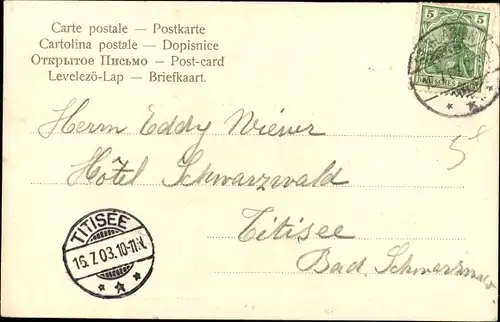 Carte postale — Postkarte
Cartolina postale — Dopisnice
Открытое Письмо — Post-card
Levelező-Lap — Briefkaart.
5 5
DEUTSCHES REICH
Herrn Eddy Wiener
Hôtel Schwarzwald
Titisee
Bad. Schwarzwald
TITISEE
16.7.03.10-11.V.